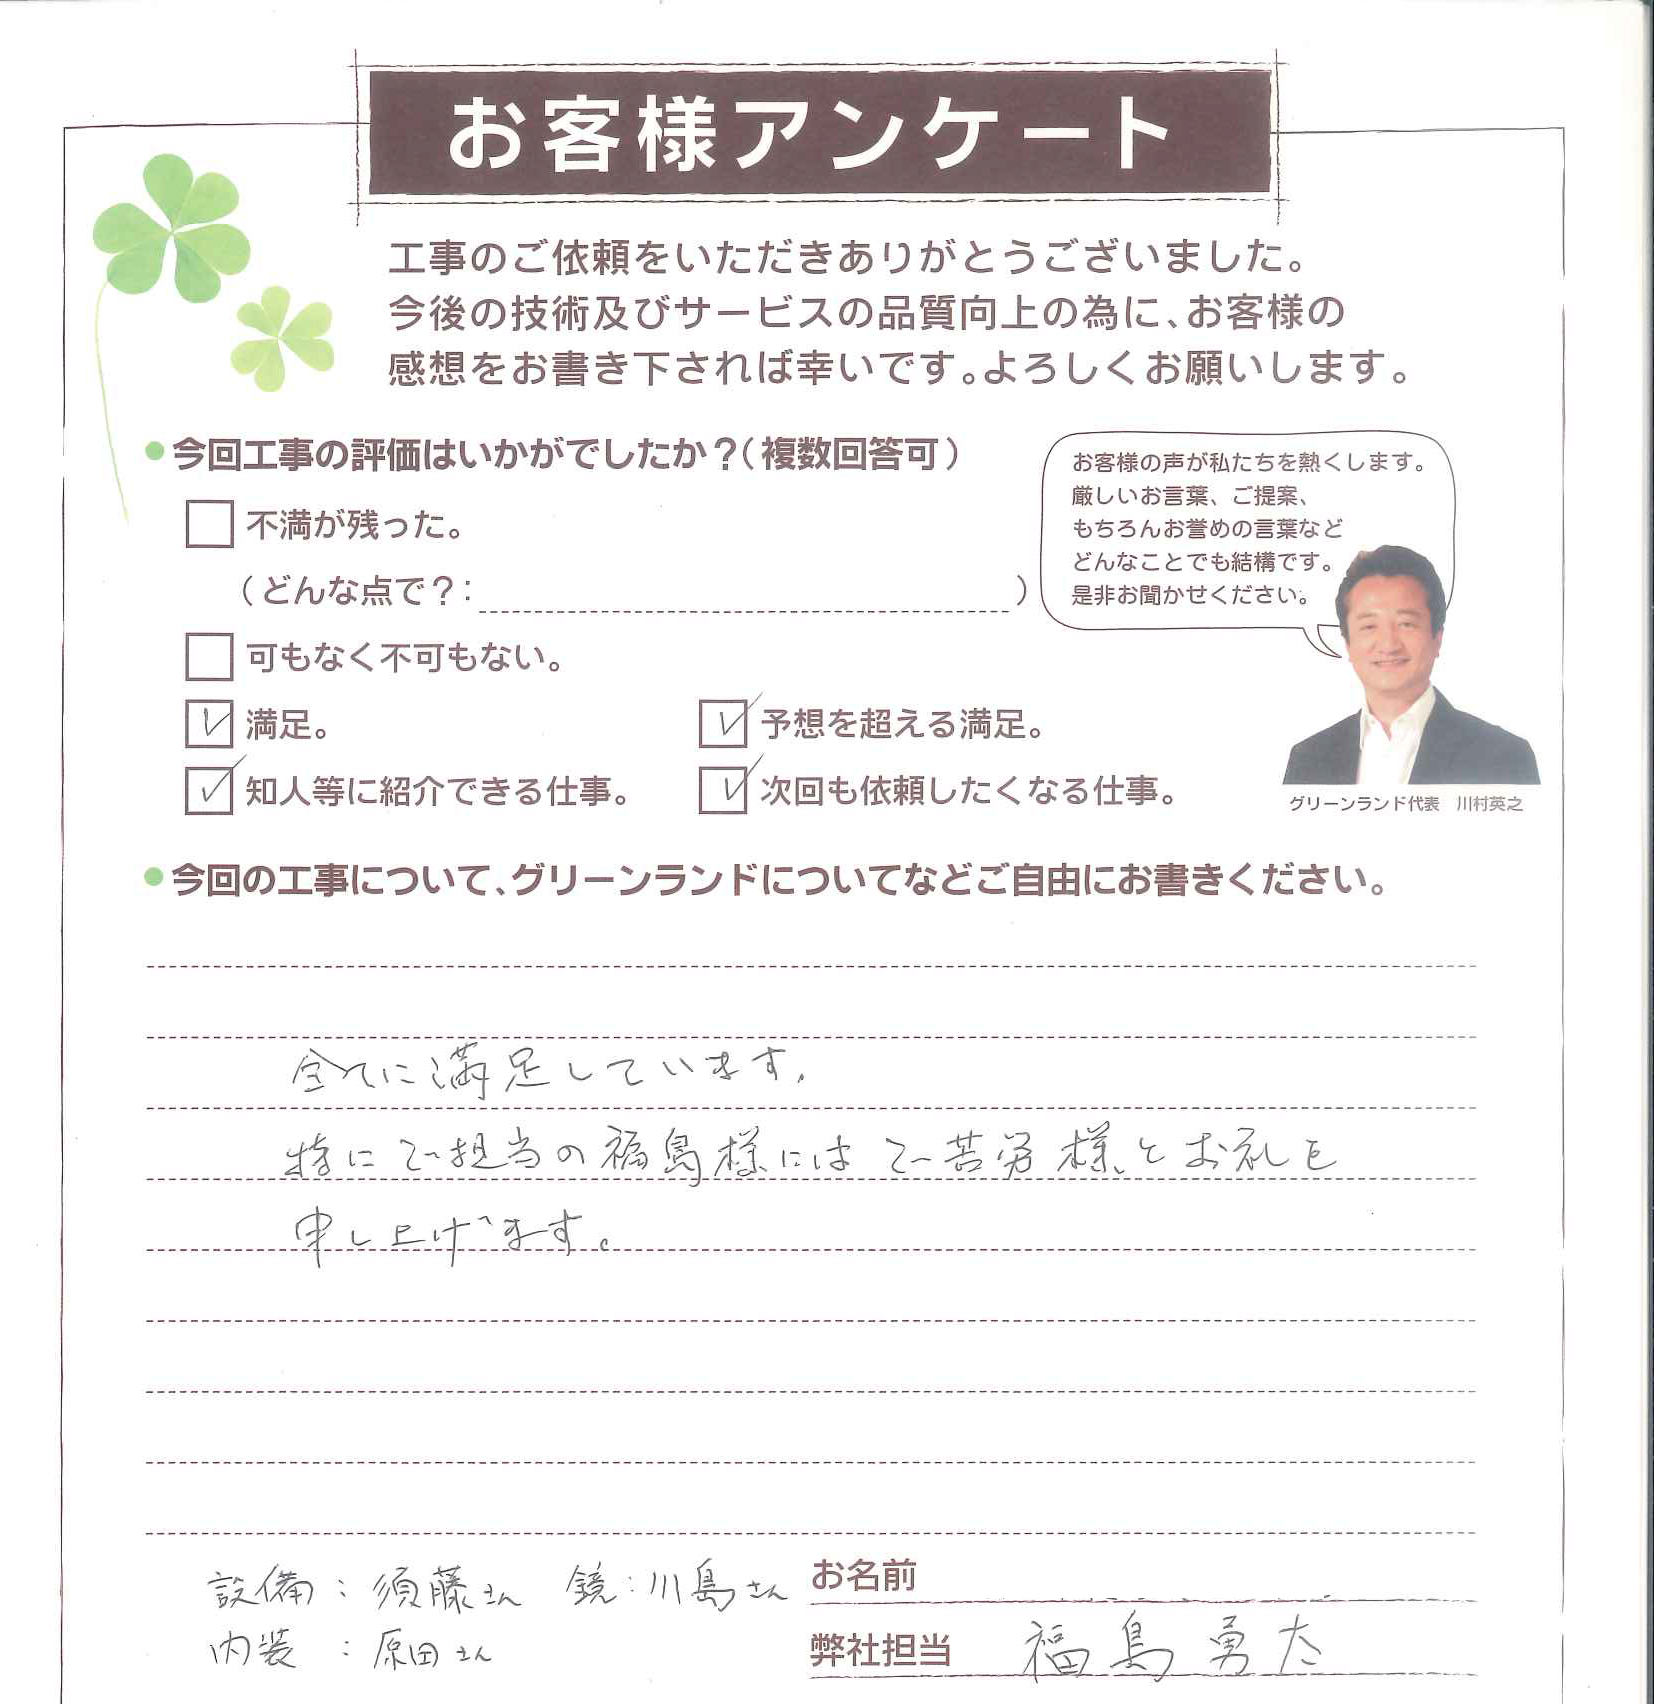 お客様アンケート
工事のご依頼をいただきありがとうございました。
今後の技術及びサービスの品質向上の為に、お客様の
感想をお書き下されば幸いです。よろしくお願いします。
●今回工事の評価はいかがでしたか？（複数回答可）
不満が残った。
（どんな点で？：　　　　）
可もなく不可もない。
満足。　予想を超える満足。
知人等に紹介できる仕事。　次回も依頼したくなる仕事。
お客様の声が私たちを熱くします。
厳しいお言葉、ご提案、
もちろんお誉めの言葉など
どんなことでも結構です。
是非お聞かせください。
グリーンランド代表　川村英之
●今回の工事について、グリーンランドについてなどご自由にお書きください。
全てに満足しています。
特にご担当の福島様にはご苦労様とお礼を
申し上げます。
設備：須藤さん　鏡：川島さん
内装：原田さん
お名前
弊社担当　福島勇太